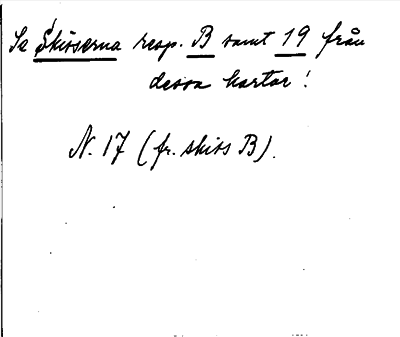 Se Skisserna resp. B samt 19 från
dessa kartor!
N. 17 (fr. skiss B).